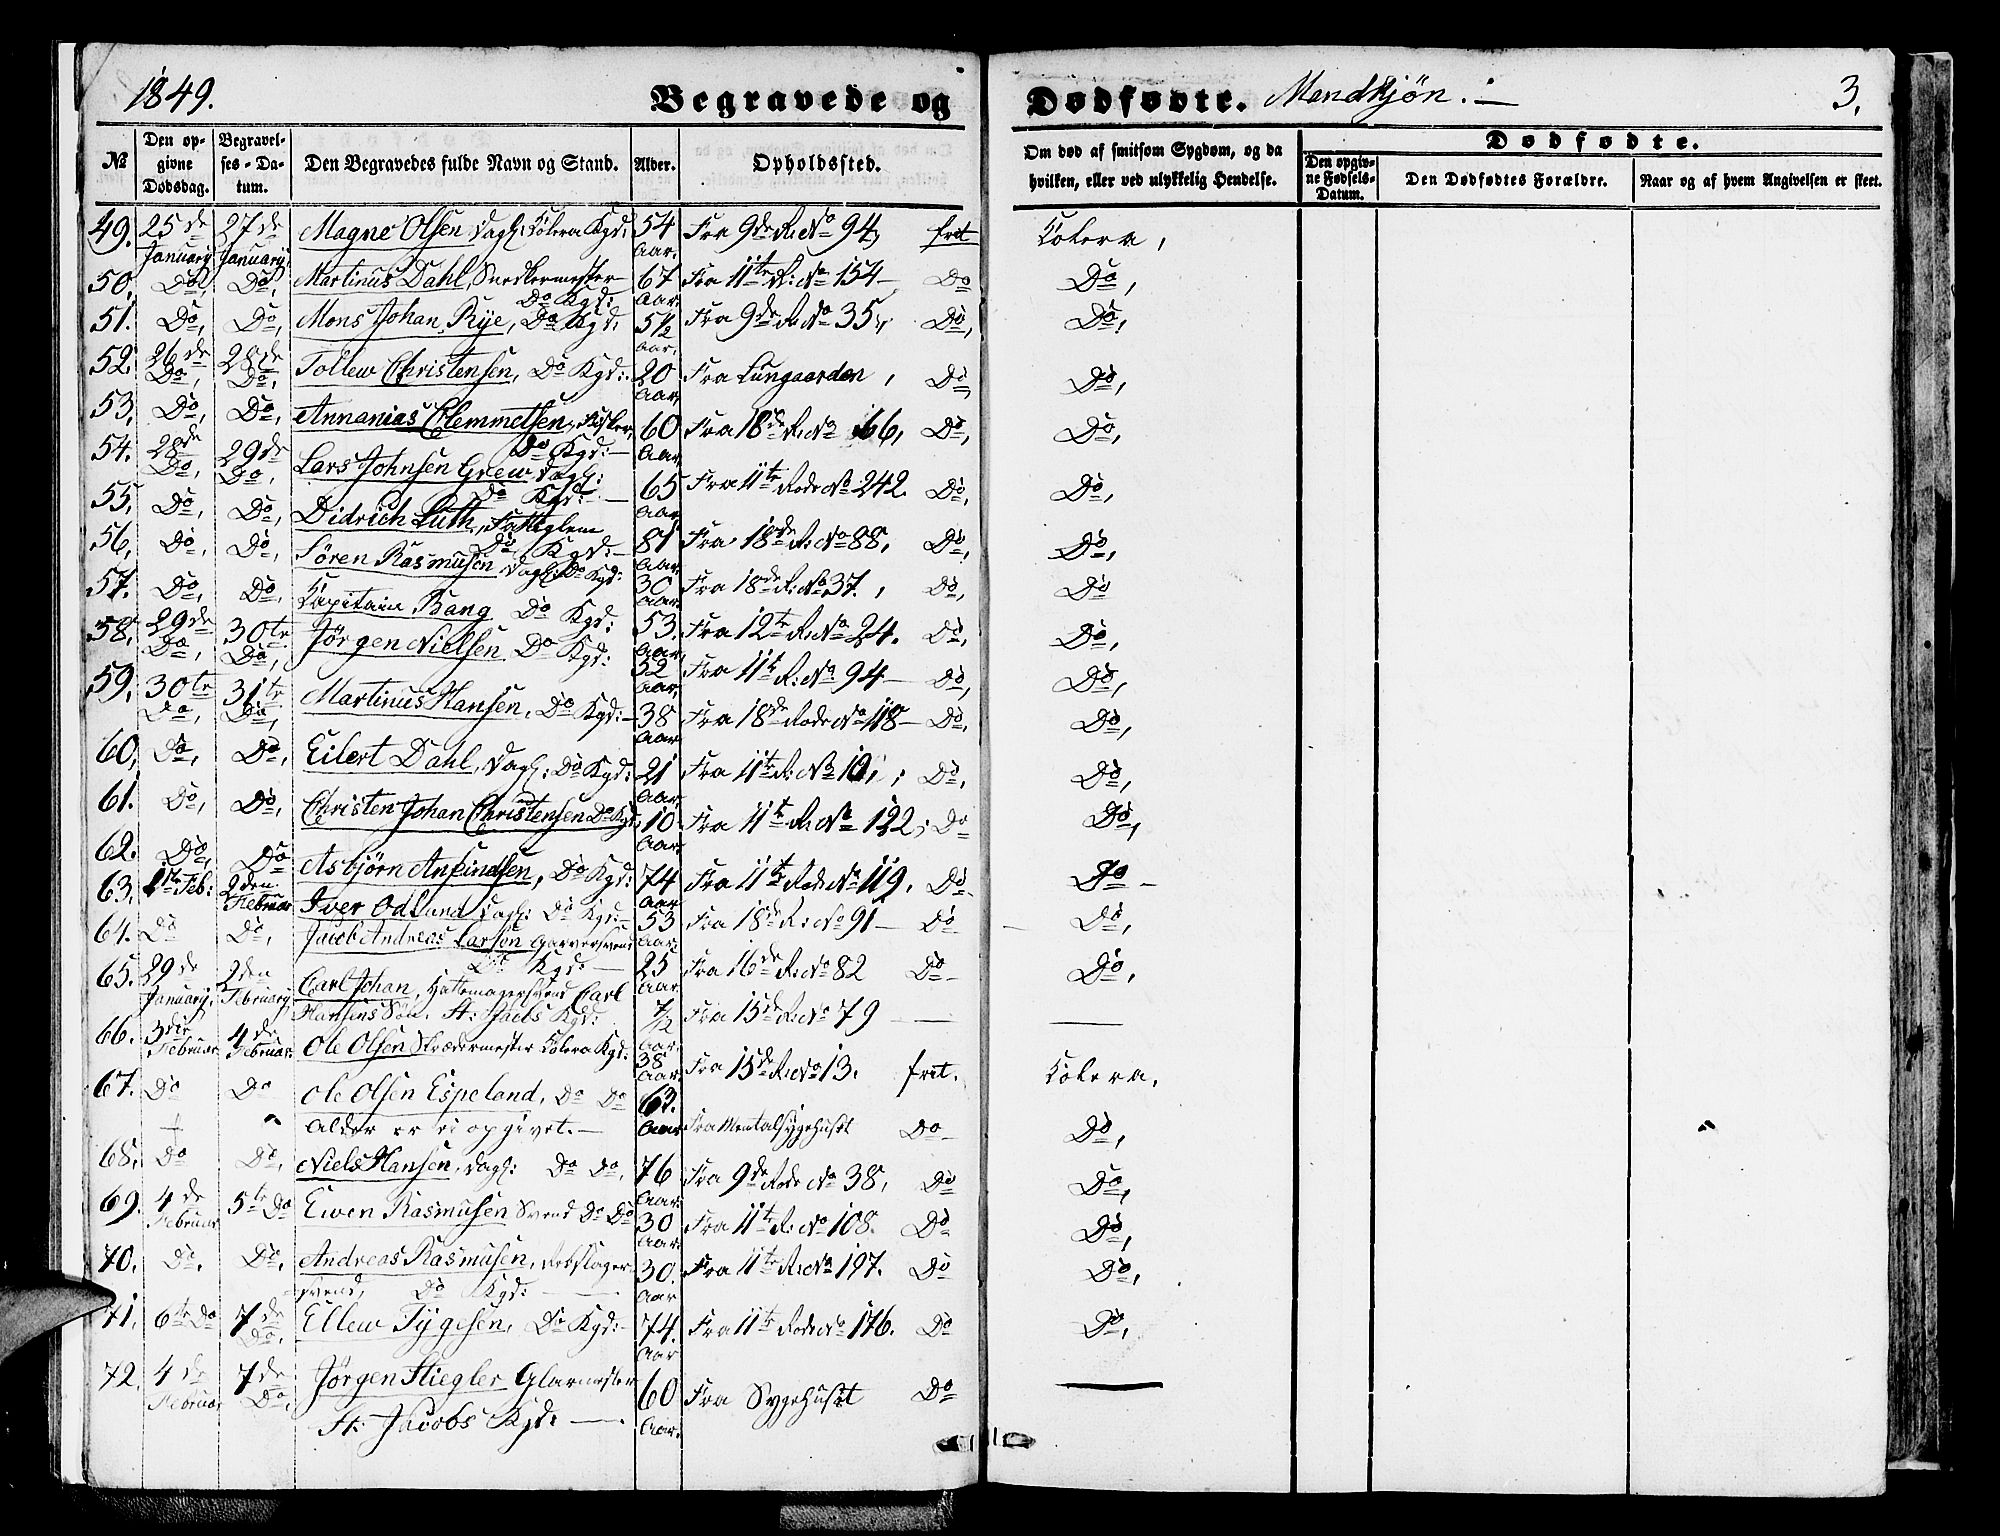 1849.
Begravede og
Dødfødte. Mandkjøn.
3.
№
Den opgivne Dødsdag.
Begravelses-Datum.
Den Begravedes fulde Navn og Stand.
Alder.
Opholdssted.
Om død af smitsom Sygdom, og da hvilken, eller ved ulykkelig Hendelse.
Dødfødte.
Den opgivne Fødsels-Datum.
Den Dødfødtes Forældre.
Naar og af hvem Angivelsen er skeet.
49. 25de January 27de January Magne Olsen Dagl: Kolera Kgd: 54 Aar. Fra 9de R: No 94, frit Kolera,
50, Do, Do, Martinus Dahl, Snedkermester Do Kgd: 67 Aar. Fra 11te R: No 154 – Do Do,
51. Do, Do, Mons Johan Rye, Do Kgd. 5½ Aar. Fra 9de R. No 35, Do, Do,
52. 26de Do, 28de Do, Tollew Christensen, Do Kgd: 20 Aar Fra Lungaarden, Do, Do,
53, Do, Do, Annanias Clemmetsen, Fisker, Do Kgd: – 60 Aar Fra 18de R. No 66, Do, Do,
54. 28de Do, 29de Do, Lars Johnsen Grew Dagl: Do Kgd: – 65 Aar Fra 11te Rode No 242. Do, Do,
55, Do, Do, Didrich Luth, Fattiglem Do Kgd: – 81 Aar Fra 18de R: No 88, Do, Do,
56, Do, Do, Sören Rasmusen Dagl: Do Kgd: 30 Aar. Fra 18de R: No 37., Do, Do
57. Do, Do, Kapitain Bang Do Kgd: 53. Aar Fra 12te R: No 24. Do, Do,
58, 29de Do, 30te Do, Jörgen Nielsen Do Kgd: 52 Aar. Fra 11te R: No 94 – Do, Do,
59, 30te Do, 31te Do, Martinus Hansen, Do Kgd: – 38 Aar Fra 18de Rode No 118 – Do, Do,
60, Do, Do, Eilert Dahl, Dagl: Do Kgd: 21 Aar. Fra 11te R: No Do, Do,
61. Do, Do, Christen Johan Christensen Do Kgd, 10 Aar Fra 11te R. No 122; Do Do,
62. Do, Do Asbjörn Ankindsen, Do Kgd: 74 Aar Fra 11te Rode No 119. Do – Do –
63, 1ste Feb: 2den Februar Iver Odland Dagl: Do Kgd: – 53 Aar. Fra 18de R: No 91 – Do – Do,
64. Do Do, Jacob Andreas Larsen Garversvend Do Kgd: – 25 Aar. Fra 16de R: No 82 Do – Do,
65. 29de January, 2den February Carl Johan, Hattemagersvend Carl Hansens Sön. St: Jacobs Kgd: 7/12 Aar. Fra 15de R: No 79 — —
66. 3die Februar 4de Februar. Ole Olsen Skrædermester Kolera Kgd: 38 Aar. Fra 15de R: No 13. frit. Kolera,
67. Do Do Ole Olsen Espeland, Do Do Alder er ei opgivet. – 63. Aar Fra Mentalsygehuset Do – Do,
68, Do Do, Niels Hansen, Dagl: Do Do, 76 Aar. Fra 9de Rode No 38, Do Do,
69. 4de Februar 5te Do Ewen Rasmusen Svend Do Do 30 Aar. Fra 11te R: No 108. Do Do,
70, Do. Do, Andreas Rasmusen, Rebslager svend, Do Kgd: — 30. Aar Fra 11te R: No 197. Do Do,
71, 6te Do 7de Do, Ellew Tygesen, Do Kgd: – 74. Aar Fra 11te Rode No 176. Do Do,
72. 4de Februar 7de Do, Jörgen Stiegler Glarmester St: Jacobs Kgd: — 60 Aar. Fra Sygehuset Do —